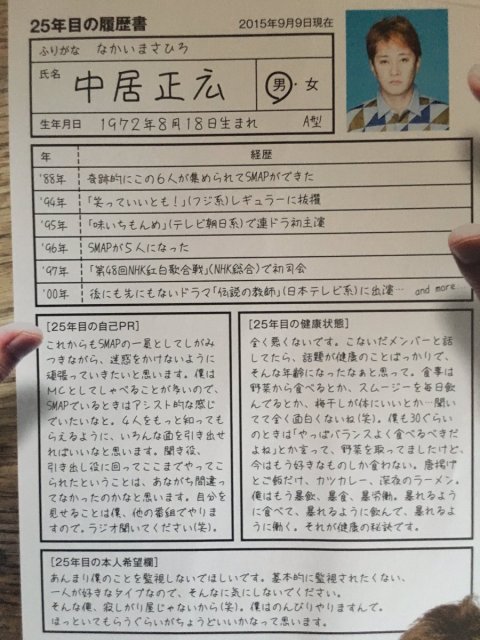 25年目の履歴書 2015年9月9日現在
ふりがな なかいまさひろ
氏名 中居正広 男・女
生年月日 1972年8月18日生まれ A型
年 経歴
'88年 奇跡的にこの6人が集められてSMAPができた
'94年 「笑っていいとも!」(フジ系)レギュラーに抜擢
'95年 「味いちもんめ」(テレビ朝日系)で連ドラ初主演
'96年 SMAPが5人になった
'97年 「第48回NHK紅白歌合戦」(NHK総合)で初司会
'00年 後にも先にもないドラマ「伝説の教師」(日本テレビ系)に出演… and more…
[25年目の自己PR]
これからもSMAPの一員としてしがみ
つきながら、迷惑をかけないように
頑張っていきたいと思います。僕は
MCとしてしゃべることが多いので、
SMAPでいるときはアシスト的な感じ
でいたいなと。4人をもっと知っても
らえるように、いろんな面を引き出せ
ればいいなと思います。聞き役、
引き出し役に回ってここまでやってこ
られたということは、あながち間違っ
てなかったのかなと思います。自分を
見せることは僕、他の番組でやりま
すので。ラジオ聞いてください(笑)。
[25年目の健康状態]
全く悪くないです。こないだメンバーと話
してたら、話題が健康のことばっかりで、
そんな年齢になったなぁと思って。食事は
野菜から食べるとか、スムージーを毎日飲
んでるとか、梅干しが体にいいとか…聞い
てて全く面白くないね(笑)。僕も30ぐらい
のときは「やっぱバランスよく食べるべきだ
よね」とか言って、野菜を取ってましたけど、
今はもう好きなものしか食わない。唐揚げ
とご飯だけ、カツカレー、深夜のラーメン。
俺はもう暴飲、暴食、暴労働。暴れるよう
に食べて、暴れるように飲んで、暴れるよ
うに働く。それが健康の秘訣です。
[25年目の本人希望欄]
あんまり僕のことを監視しないでほしいです。基本的に監視されたくない、
一人が好きなタイプなので、そんなに気にしないでください。
そんな俺、寂しがり屋じゃないから(笑)。僕はのんびりやりますんで。
ほっといてもらうぐらいがちょうどいいかなって思います。